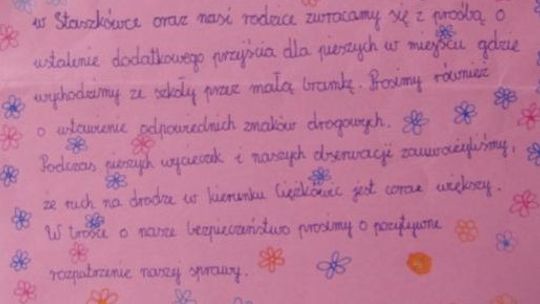 w Staszkówce oraz nasi rodzice zwracamy się z prośbą o
ustalenie dodatkowego przyjścia dla pieszych w miejscu gdzie
wychodzimy ze szkoły przez małą bramkę. Prosimy również
o ustawienie odpowiednich znaków drogowych.
Podczas pieszych wycieczek i naszych obserwacji zauważyliśmy,
że ruch na drodze w kierunku Ciężkowic jest coraz większy.
W trosce o nasze bezpieczeństwo prosimy o pozytywne
rozpatrzenie naszej sprawy.